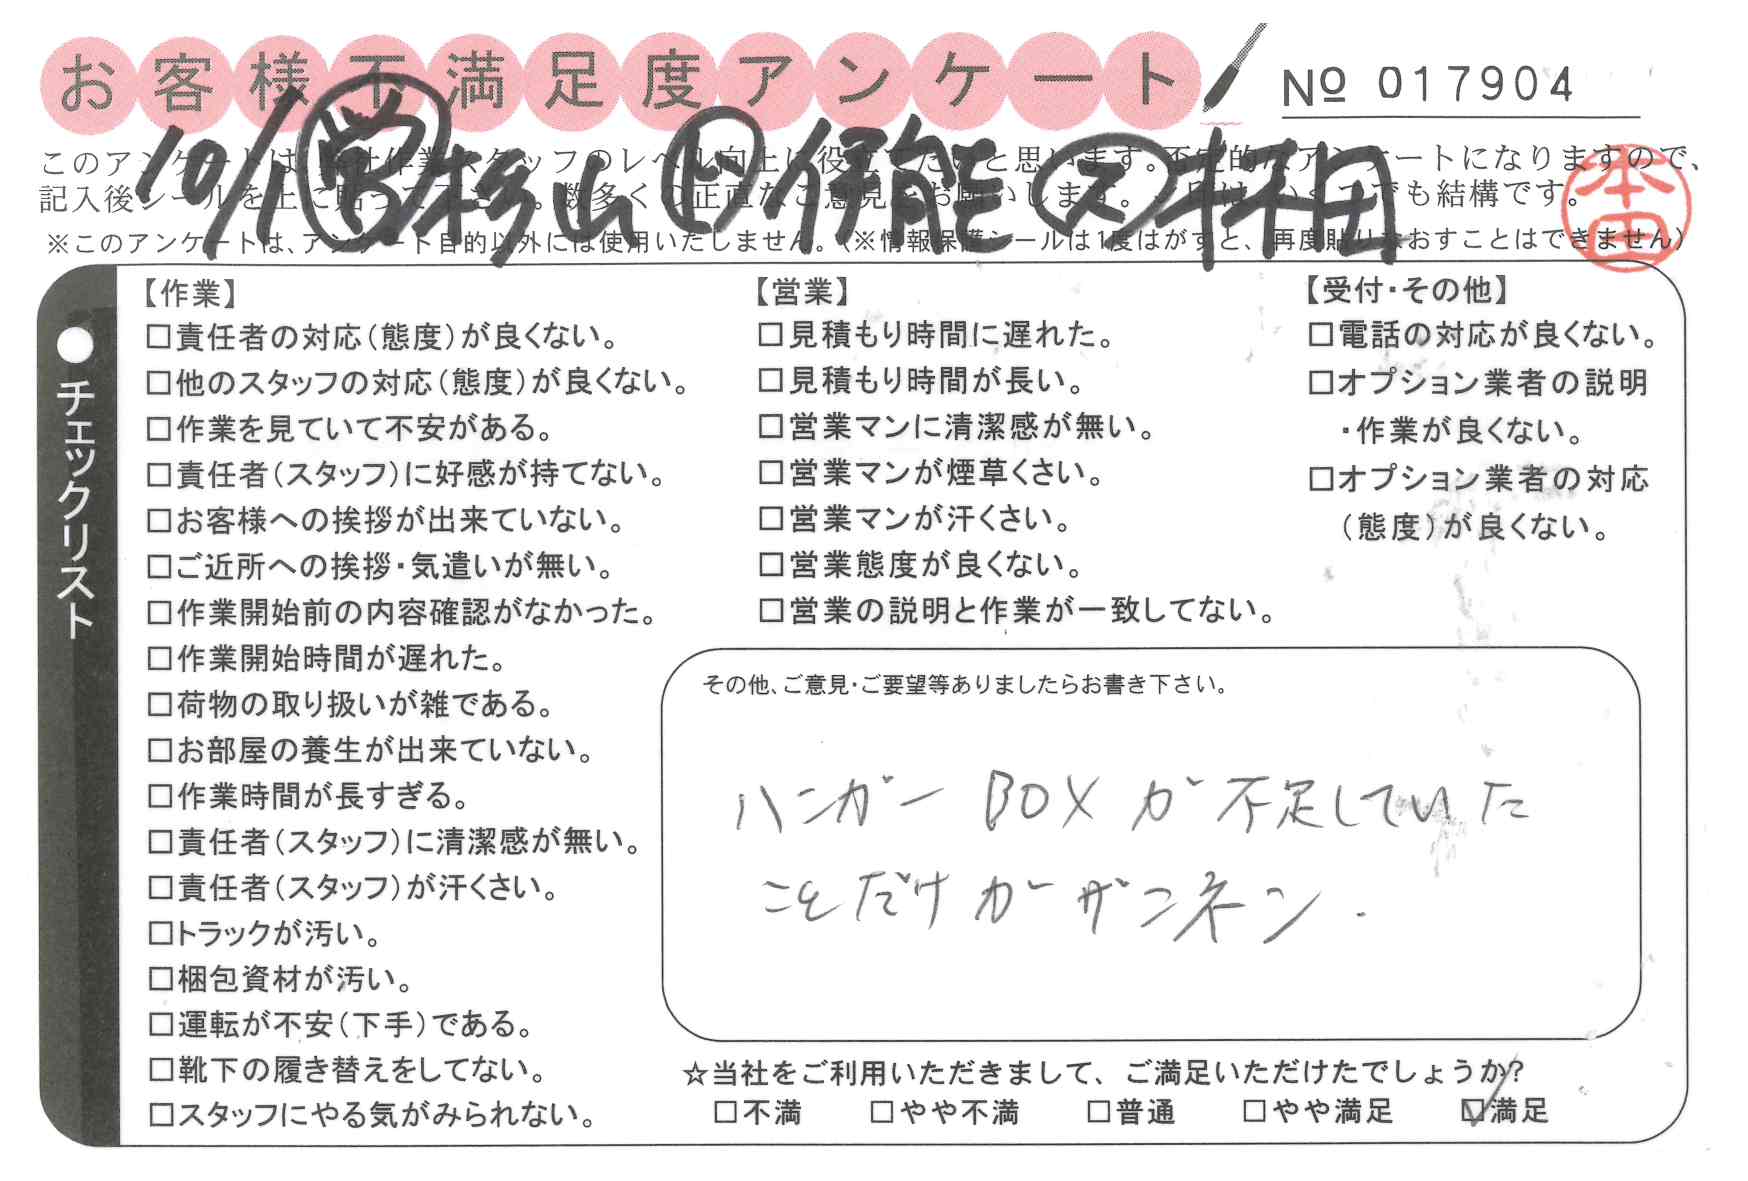 お客様不満足度アンケート
№ 017904
10/1 営 杉山 ド 伊能 ス 本田
このアンケートは、弊社作業スタッフのレベル向上に役立てたいと思います。不定的なアンケートになりますので、
記入後シールを上に貼って下さい。数多くの正直なご意見をお願いします。 いくつでも結構です。
※このアンケートは、アンケート目的以外には使用いたしません。(※情報保護シールは1度はがすと、再度貼りなおすことはできません)
本田
●チェックリスト
【作業】
□責任者の対応(態度)が良くない。
□他のスタッフの対応(態度)が良くない。
□作業を見ていて不安がある。
□責任者(スタッフ)に好感が持てない。
□お客様への挨拶が出来ていない。
□ご近所への挨拶・気遣いが無い。
□作業開始前の内容確認がなかった。
□作業開始時間が遅れた。
□荷物の取り扱いが雑である。
□お部屋の養生が出来ていない。
□作業時間が長すぎる。
□責任者(スタッフ)に清潔感が無い。
□責任者(スタッフ)が汗くさい。
□トラックが汚い。
□梱包資材が汚い。
□運転が不安(下手)である。
□靴下の履き替えをしてない。
□スタッフにやる気がみられない。
【営業】
□見積もり時間に遅れた。
□見積もり時間が長い。
□営業マンに清潔感が無い。
□営業マンが煙草くさい。
□営業マンが汗くさい。
□営業態度が良くない。
□営業の説明と作業が一致してない。
【受付・その他】
□電話の対応が良くない。
□オプション業者の説明
・作業が良くない。
□オプション業者の対応
(態度)が良くない。
その他、ご意見・ご要望等ありましたらお書き下さい。
ハンガーBOXが不足していた
ことだけがザンネン.
☆当社をご利用いただきまして、ご満足いただけたでしょうか?
□不満 □やや不満 □普通 □やや満足 ☑満足